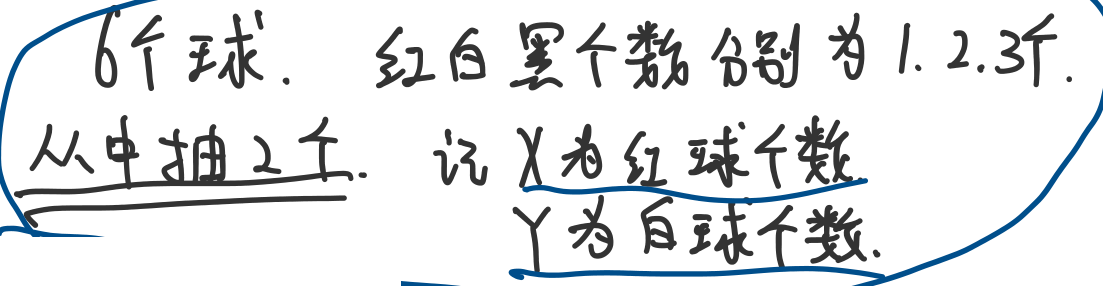 6个球. 红白黑个数分别为1.2.3个.
从中抽2个. 记X为红球个数.
Y为白球个数.